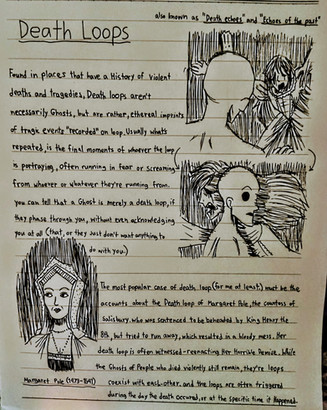 also known as "Death echoes" and "Echoes of the past"
Death Loops
Found in places that have a History of violent
deaths and tragedies, Death loops aren't
necessarily Ghosts, but are rather, ethereal imprints
of tragic events "recorded" on loop. Usually whats
repeated, is the final moments of whoever the loop
is portraying, often running in fear or screaming
from whoever or whatever they're running from.
you can tell that a Ghost is merely a death loop, if
they phase through you, without even acknowledging
you at all (that, or they just don't want anything to
do with you.)
The most popular case of death loop (for me at least) must be the
accounts about the Death loop of Margaret Pole, the countess of
Salisbury, who was sentenced to be beheaded by King Henry the
8th, but tried to run away, which resulted in a bloody mess. Her
death loop is often witnessed reenacting her Horrible Demise. While
the Ghosts of People who died violently still remain, they're loops
coexist with each other, and the loops are often triggered
during the day the death occured, or at the specific time it Happened.
Margaret Pole (1473-1541)